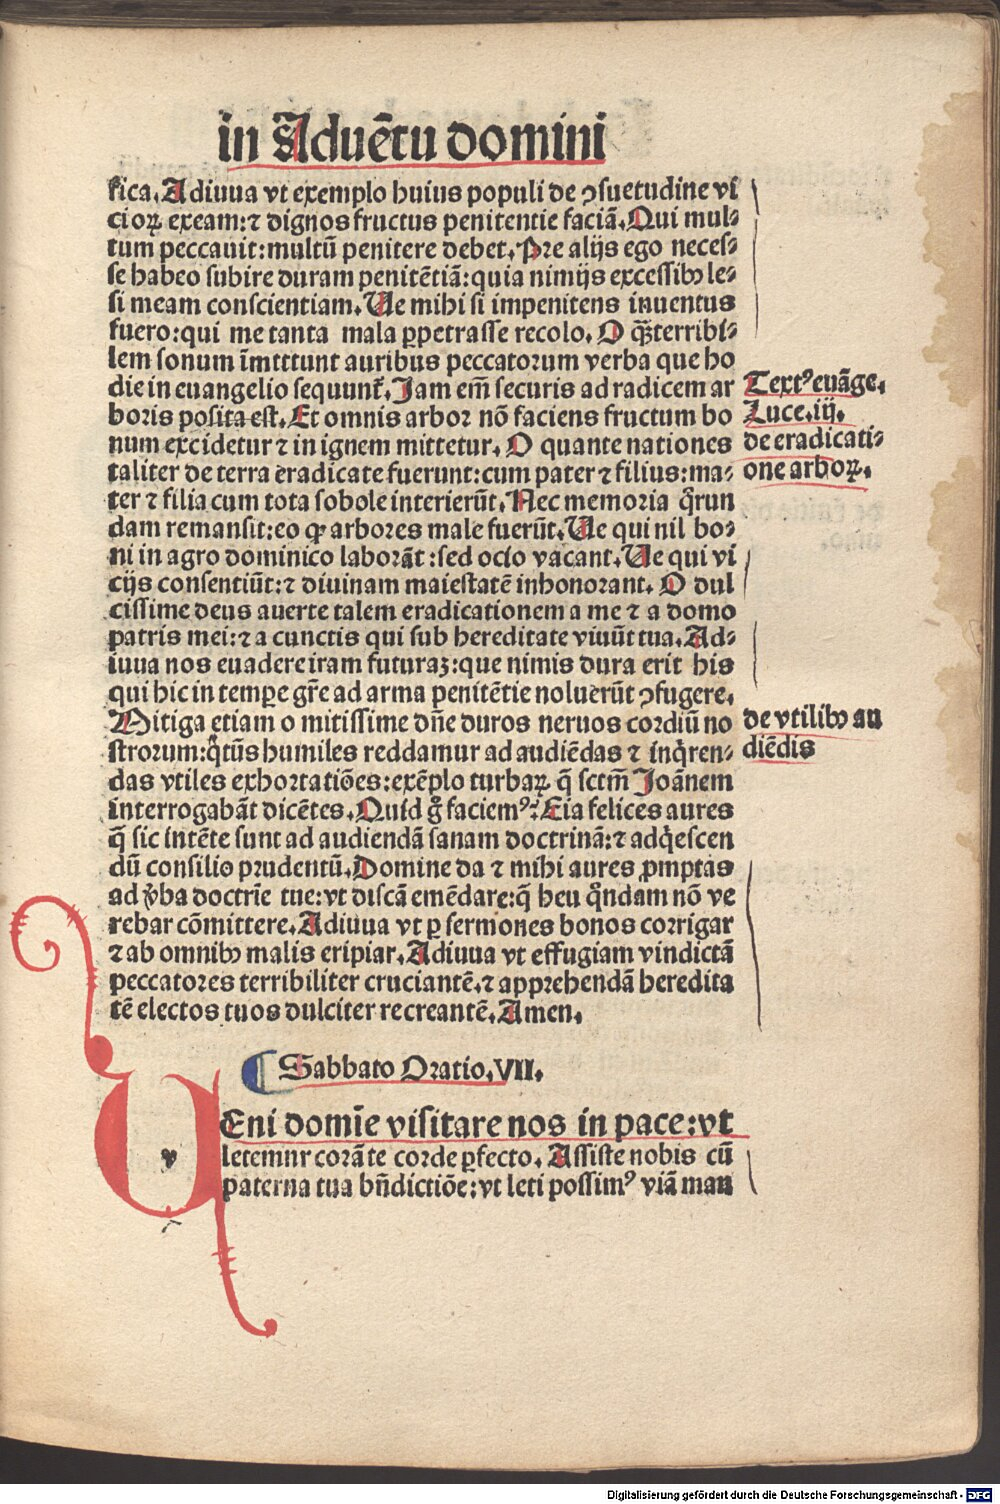 in Aduētu domini
fica. Adiuua vt exemplo huius populi de ꝯsuetudine vi
cioꝝ exeam: ⁊ dignos fructus penitentie faciā. Qui mul⸗
tum peccauit: multū penitere debet. Pre alijs ego neces⸗
se habeo subire duram penitētiā: quia nimijs excessibꝰ le⸗
si meam conscientiam. Ue mihi si impenitens inuentus
fuero: qui me tanta mala ꝑpetrasse recolo. O qȝ̄ terribi⸗
lem sonum īmittunt auribus peccatorum verba que ho
die in euangelio sequunt̄. Jam em̄ securis ad radicem ar
boris posita est. Et omnis arbor nō faciens fructum bo
num excidetur ⁊ in ignem mittetur. O quante nationes
taliter de terra eradicate fuerunt: cum pater ⁊ filius: ma⸗
ter ⁊ filia cum tota sobole interierūt. Nec memoria q̄run
dam remansit: eo ꝙ arbores male fuerūt. Ue qui nil bo⸗
ni in agro dominico laborāt: sed ocio vacant. Ue qui vi
cijs consentiūt: ⁊ diuinam maiestatē inhonorant. O dul
cissime deus auerte talem eradicationem a me ⁊ a domo
patris mei: ⁊ a cunctis qui sub hereditate viuūt tua. Ad⸗
iuua nos euadere iram futuraꝫ: que nimis dura erit his
qui hic in tempe gr̄e ad arma penitētie noluerūt ꝯfugere.
Mitiga etiam o mitissime dn̄e duros neruos cordiū no
strorum: q̄tūs humiles reddamur ad audiēdas ⁊ inq̄ren⸗
das vtiles exhortatiōes: exēplo turbaꝝ q̄ sctm̄ Joānem
interrogabāt dicētes. Quid g̊ faciemꝰ? Eia felices aures
q̄ sic intēte sunt ad audiendā sanam doctrinā: ⁊ adq̇escen
dū consilio prudentū. Domine da ⁊ mihi aures ꝓmptas
ad v̄ba doctrīe tue: vt discā emēdare: q̄ heu q̄ndam nō ve
rebar cōmittere. Adiuua vt ꝑ sermones bonos corrigar
⁊ ab omnibꝰ malis eripiar. Adiuua vt effugiam vindictā
peccatores terribiliter cruciantē. ⁊ apprehendā heredita
tē electos tuos dulciter recreantē. Amen.
Textꝰ euāge.
Luce. iij.
de eradicati⸗
one arboꝝ.
de vtilibꝰ au
diēdis
Sabbato Oratio. VII.
UEni domīe visitare nos in pace: vt
v
letemur corā te corde ꝑfecto. Assiste nobis cū
paterna tua bn̄dictiōe: vt leti possimꝰ viā man
Digitalisierung gefördert durch die Deutsche Forschungsgemeinschaft - DFG